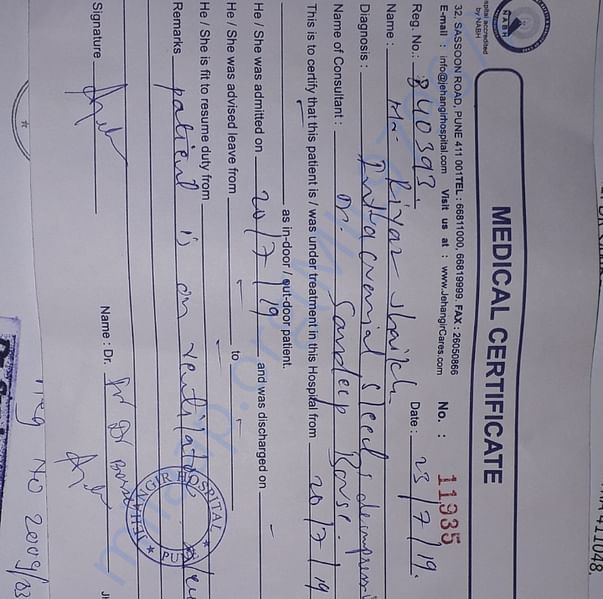 411048.
NABH
spital accredited
by NABH
MEDICAL CERTIFICATE
32, SASSOON ROAD, PUNE 411 001 TEL : 66811000, 66819999. FAX : 26050866
E-mail : info@jehangirhospital.com Visit us at : www.JehangirCares.com No. : 11935
Reg. No.: 840393. Date : 23/7/19.
Name : Mr.
Diagnosis : Intracranial
Name of Consultant : Dr. Sandeep Borse.
This is to certify that this patient is / was under treatment in this Hospital from 20/7/19
as in-door / out-door patient.
He / She was admitted on 20/7/19 and was discharged on -
He / She was advised leave from - to -
He / She is fit to resume duty from -
Remarks patient is on ventilator
JEHANGIR HOSPITAL PUNE
Signature
Name : Dr.